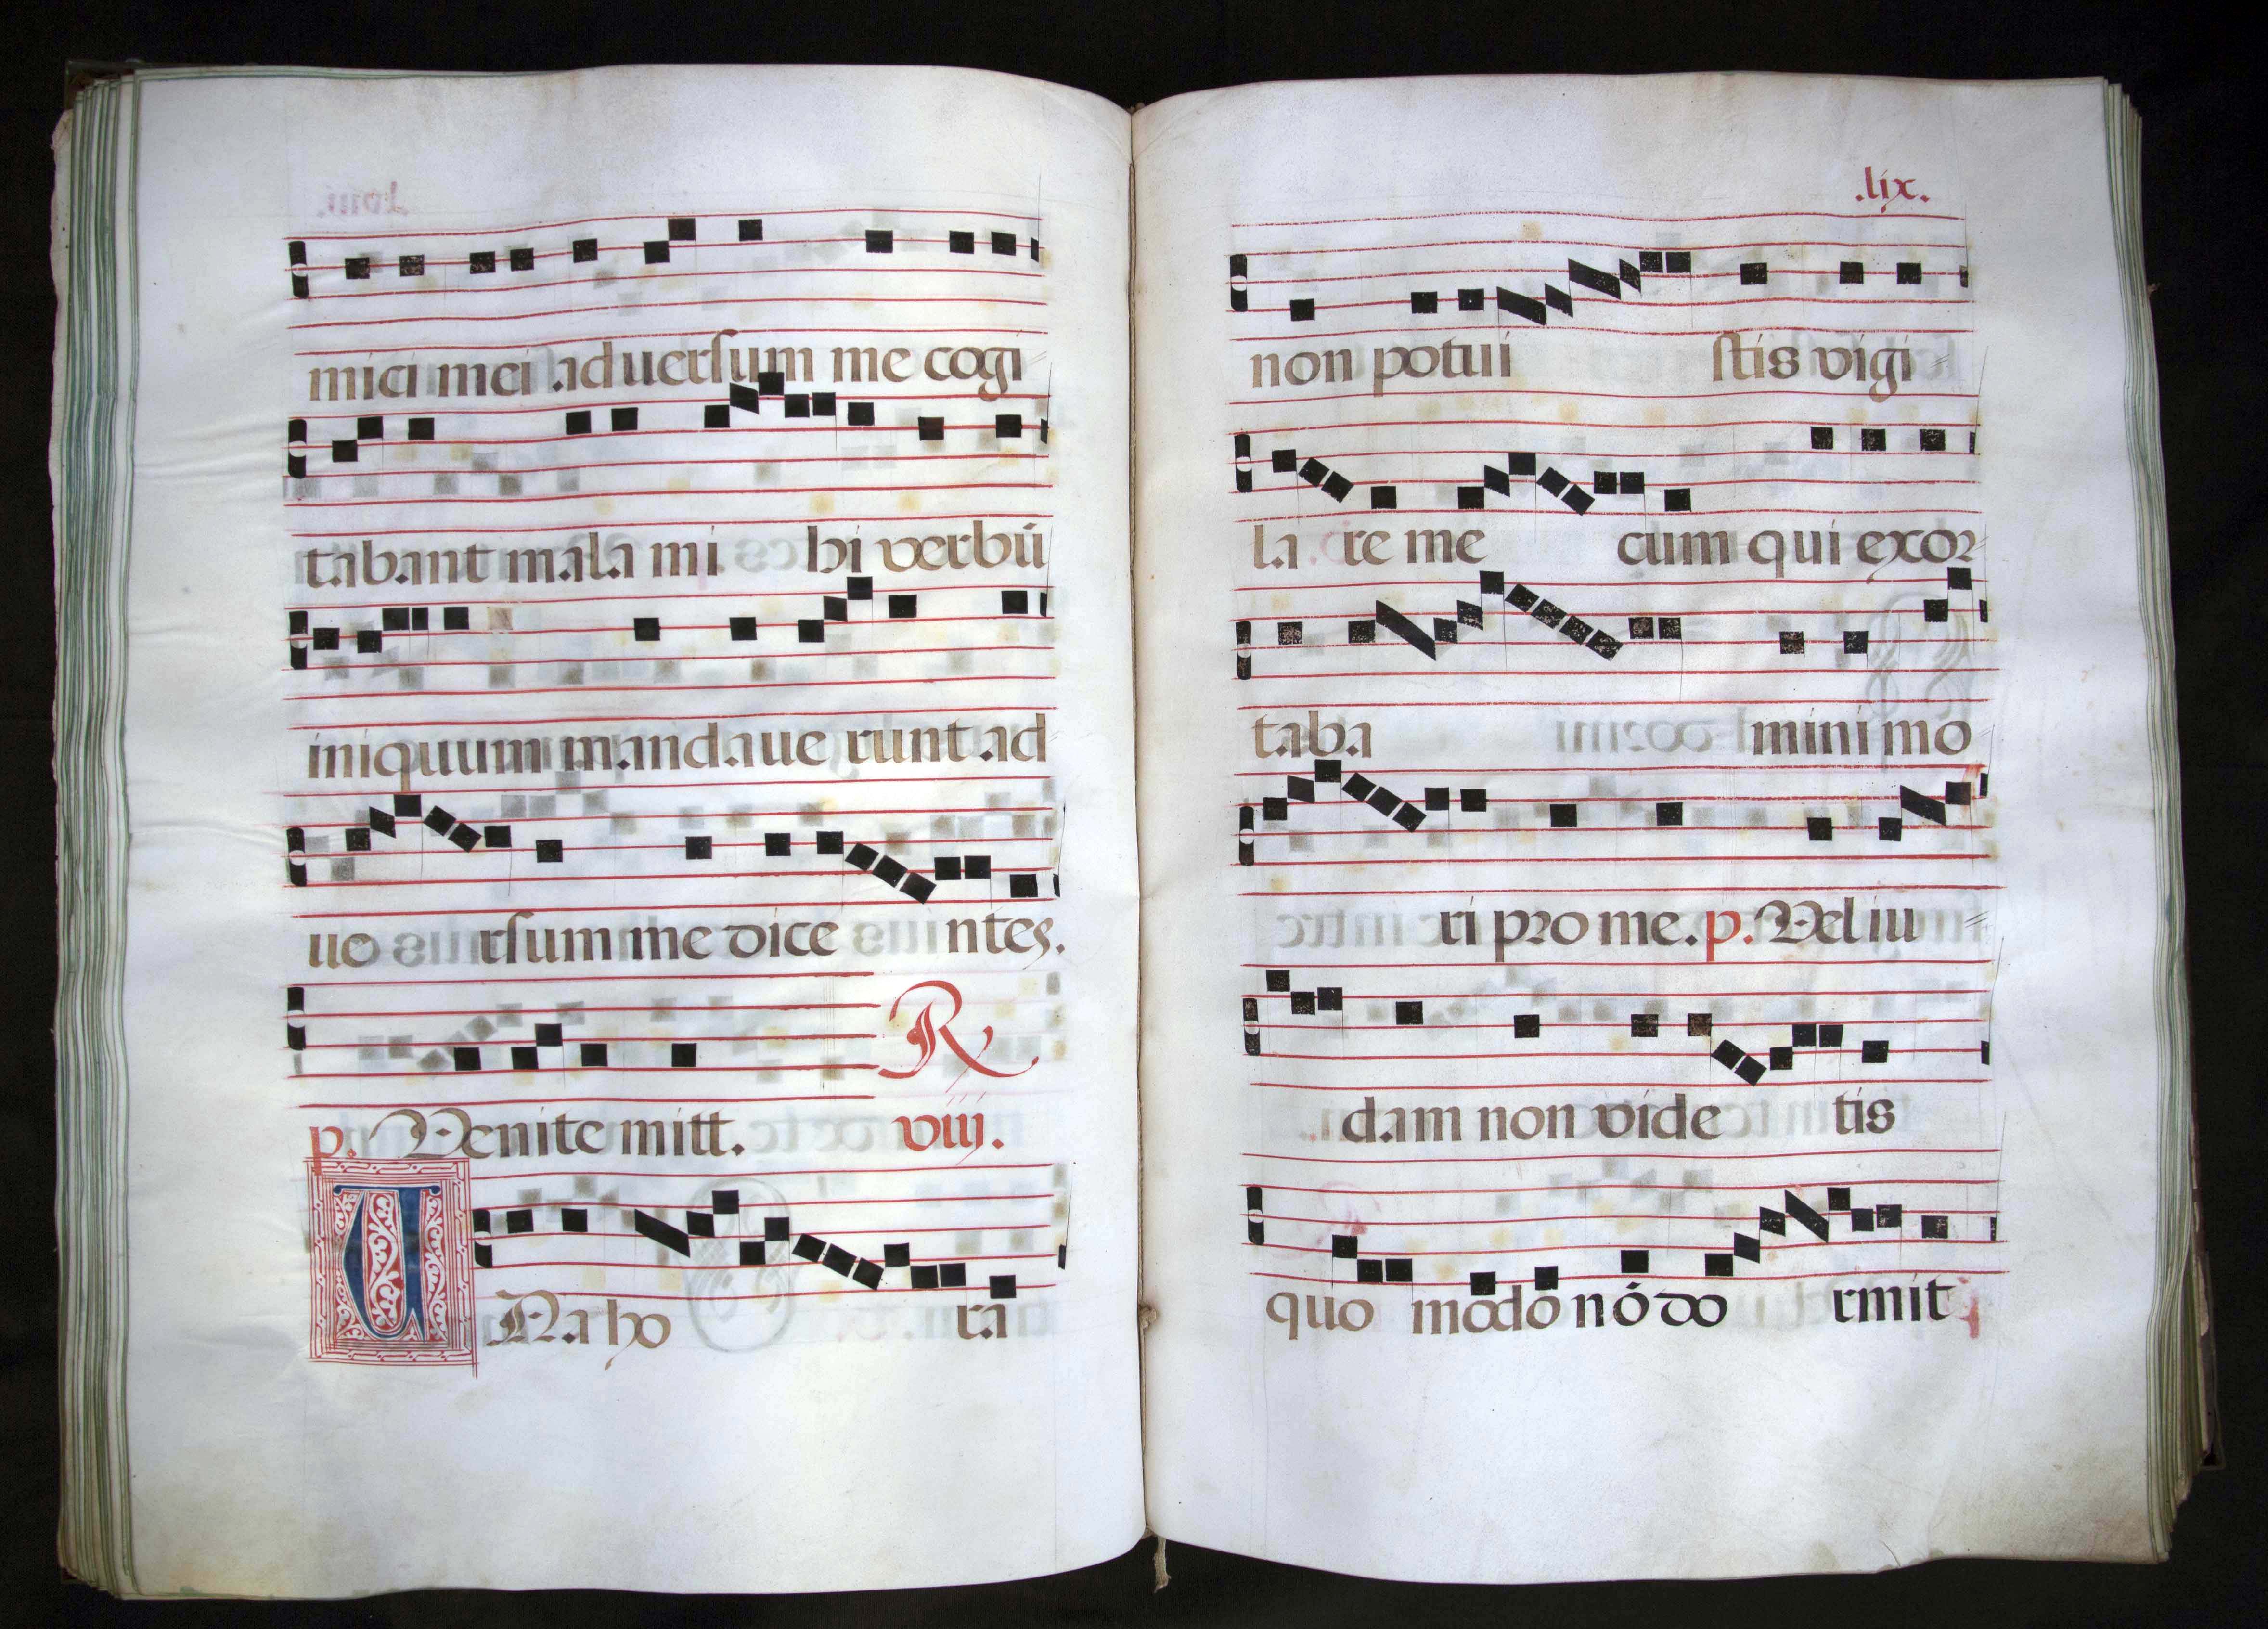 mici mei aduersum me cogi
tabant mala mi hi verbū
iniquum mandaue runt ad
uo rsum me dice ntes.
R
p. Venite mitt. viij.
UNa ho ra
.lix.
non potui stis vigi
la re me cum qui exor
taba mini mo
ri pro me. p. Vel iu
dam non vide tis
quo modo nō do rmit